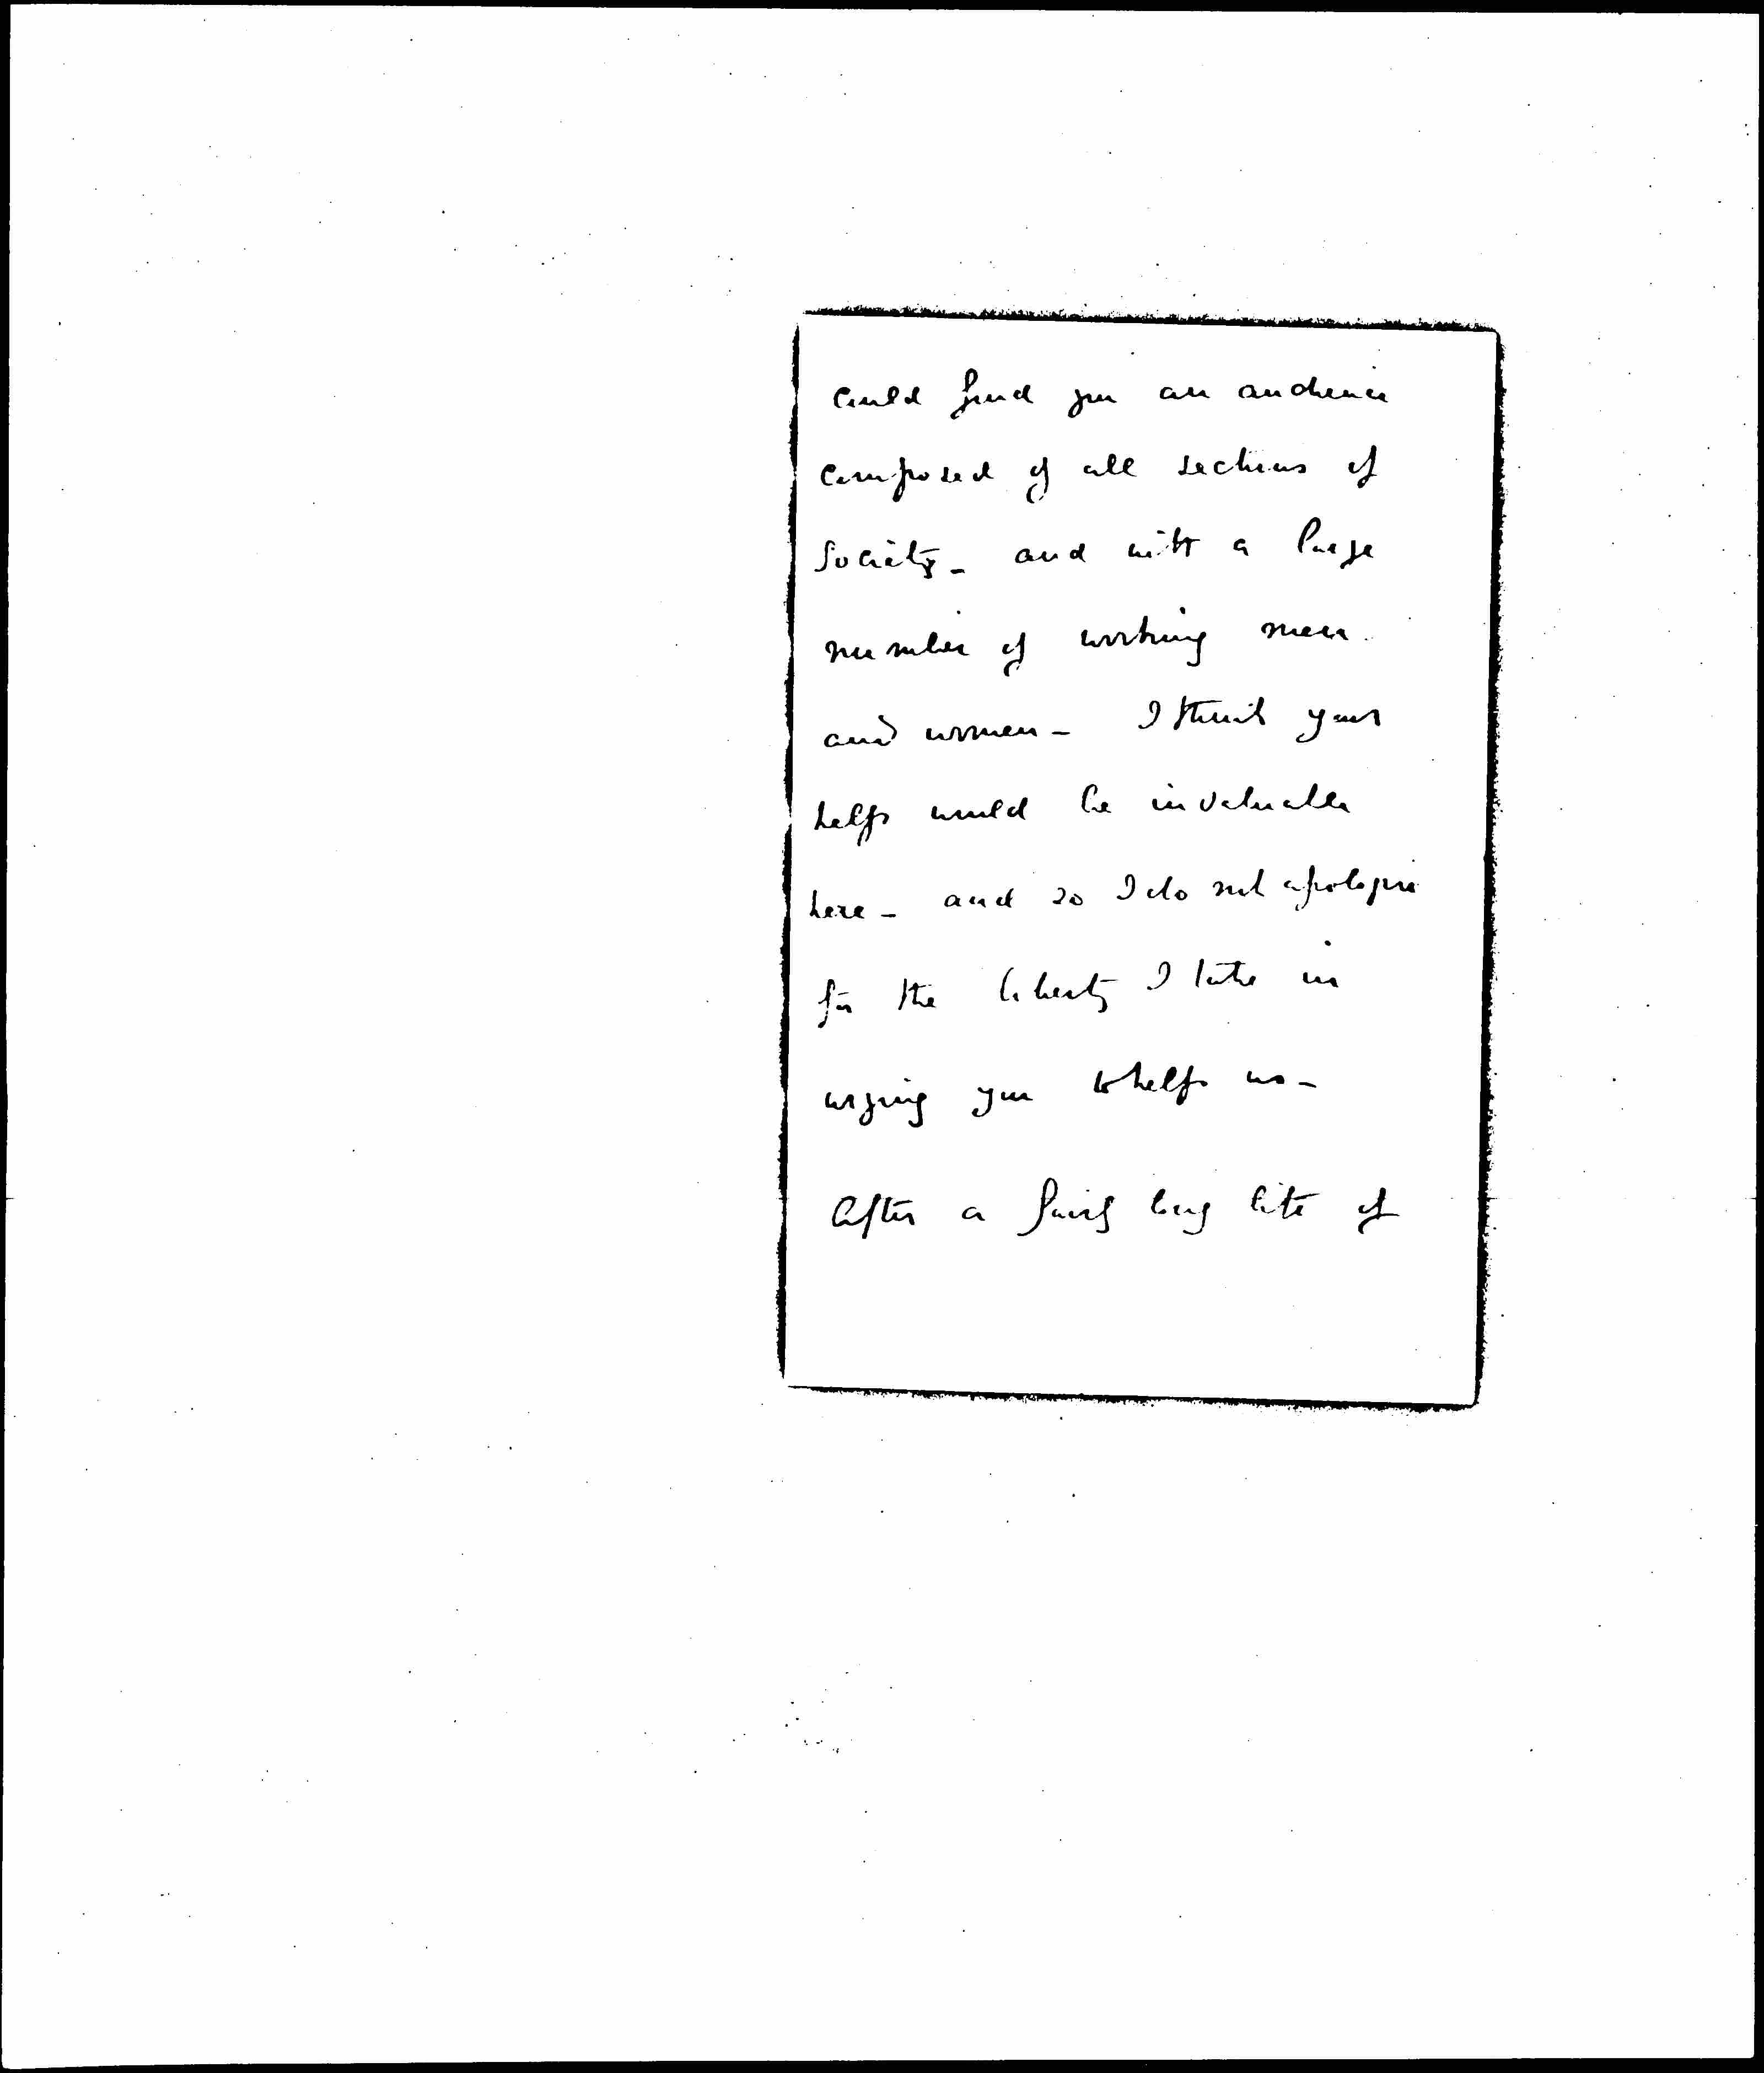 could find you an audience
composed of all sections of
Society - and with a large
number of working men
and women - I think your
help would be invaluable
here - and so I do not apologise
for the liberty I take in
urging you to help us -
After a fairly long life of